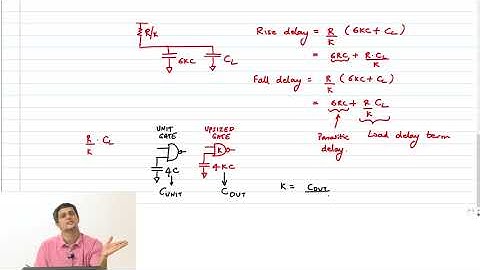 R/K
6KC
CL
Rise delay = R/K (6KC + CL)
= 6RC + R.CL/K
Fall delay = R/K (6KC + CL)
= 6RC + R/K CL
Parasitic delay.
Load delay term
R/K . CL
UNIT GATE
UPSIZED GATE
K
4C
4KC
CUNIT
COUT
K = COUT